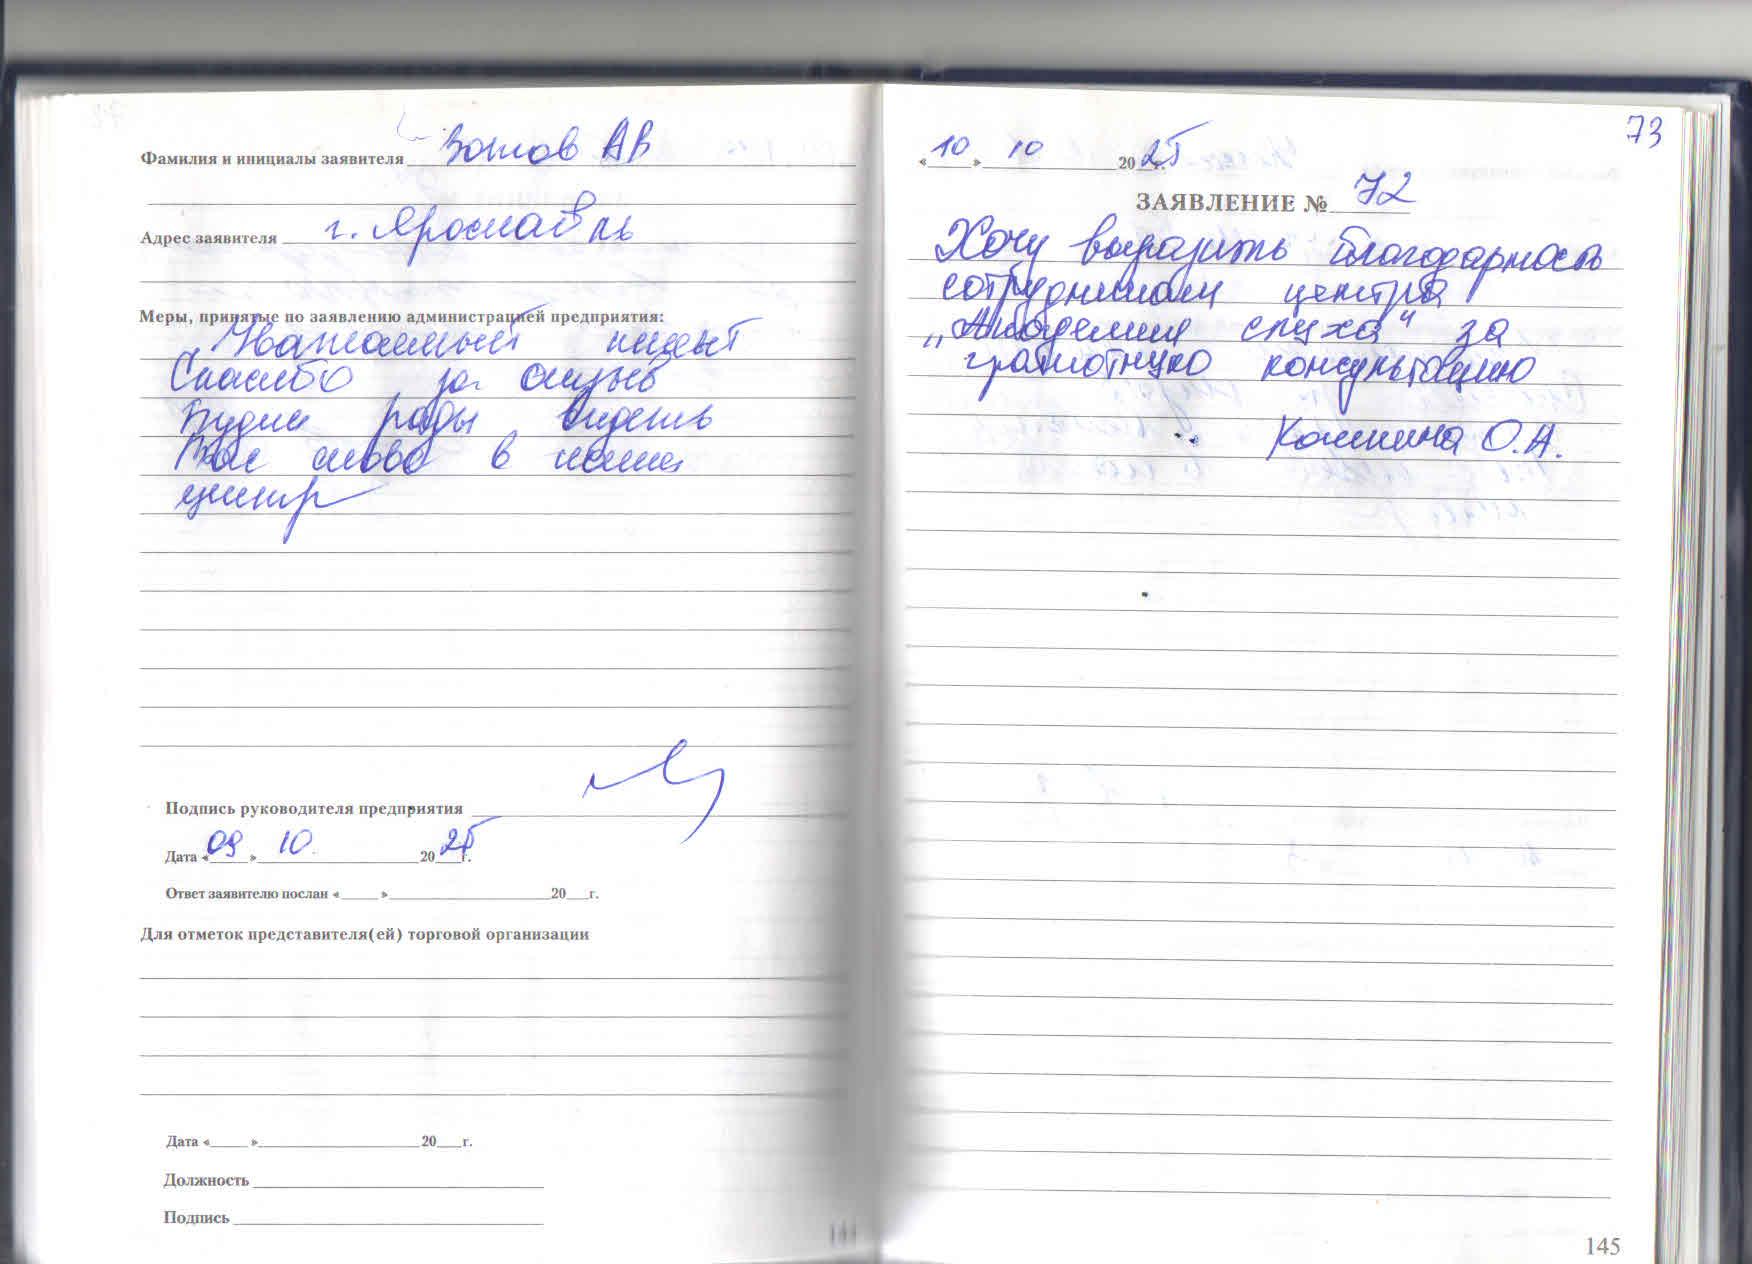 Фамилия и инициалы заявителя Зотов АВ
Адрес заявителя г. Ярославль
Меры, принятые по заявлению администрацией предприятия:
Уважаемый клиент
Спасибо за отзыв
Будем рады видеть
Вас снова в нашем
центр
Подпись руководителя предприятия
Дата «09» 10. 2025г.
Ответ заявителю послан «___» ___ 20__г.
Для отметок представителя(ей) торговой организации
Дата «___» ___ 20__г.
Должность
Подпись
73
«10» 10 2025г.
ЗАЯВЛЕНИЕ № 72
Хочу выразить благодарность
сотрудникам центра
„Академия слуха" за
грамотную консультацию
О.А.
145